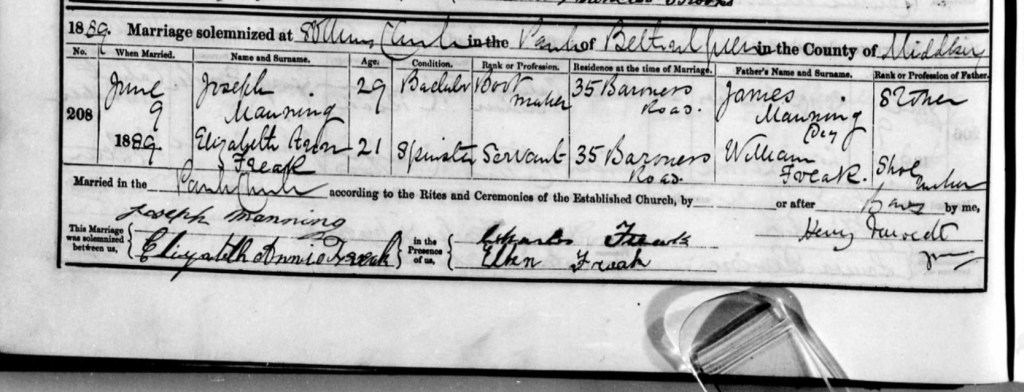 1889. Marriage solemnized at St Thomas Church in the Parish of Bethnal Green in the County of Middlesex
No. When Married. Name and Surname. Age. Condition. Rank or Profession. Residence at the time of Marriage. Father's Name and Surname. Rank or Profession of Father.
208 June 9 1889 Joseph Manning 29 Bachelor Boot maker 35 Baroness Road. James Manning
Elizabeth Ann Freak 21 Spinster Servant 35 Baroness Road. William Freak. Shoe maker
Married in the Parish Church according to the Rites and Ceremonies of the Established Church, by or after Banns by me,
This Marriage was solemnized between us, Joseph Manning in the Presence of us, Charles Freak Henry
Elizabeth Annie Freak Ellen Freak